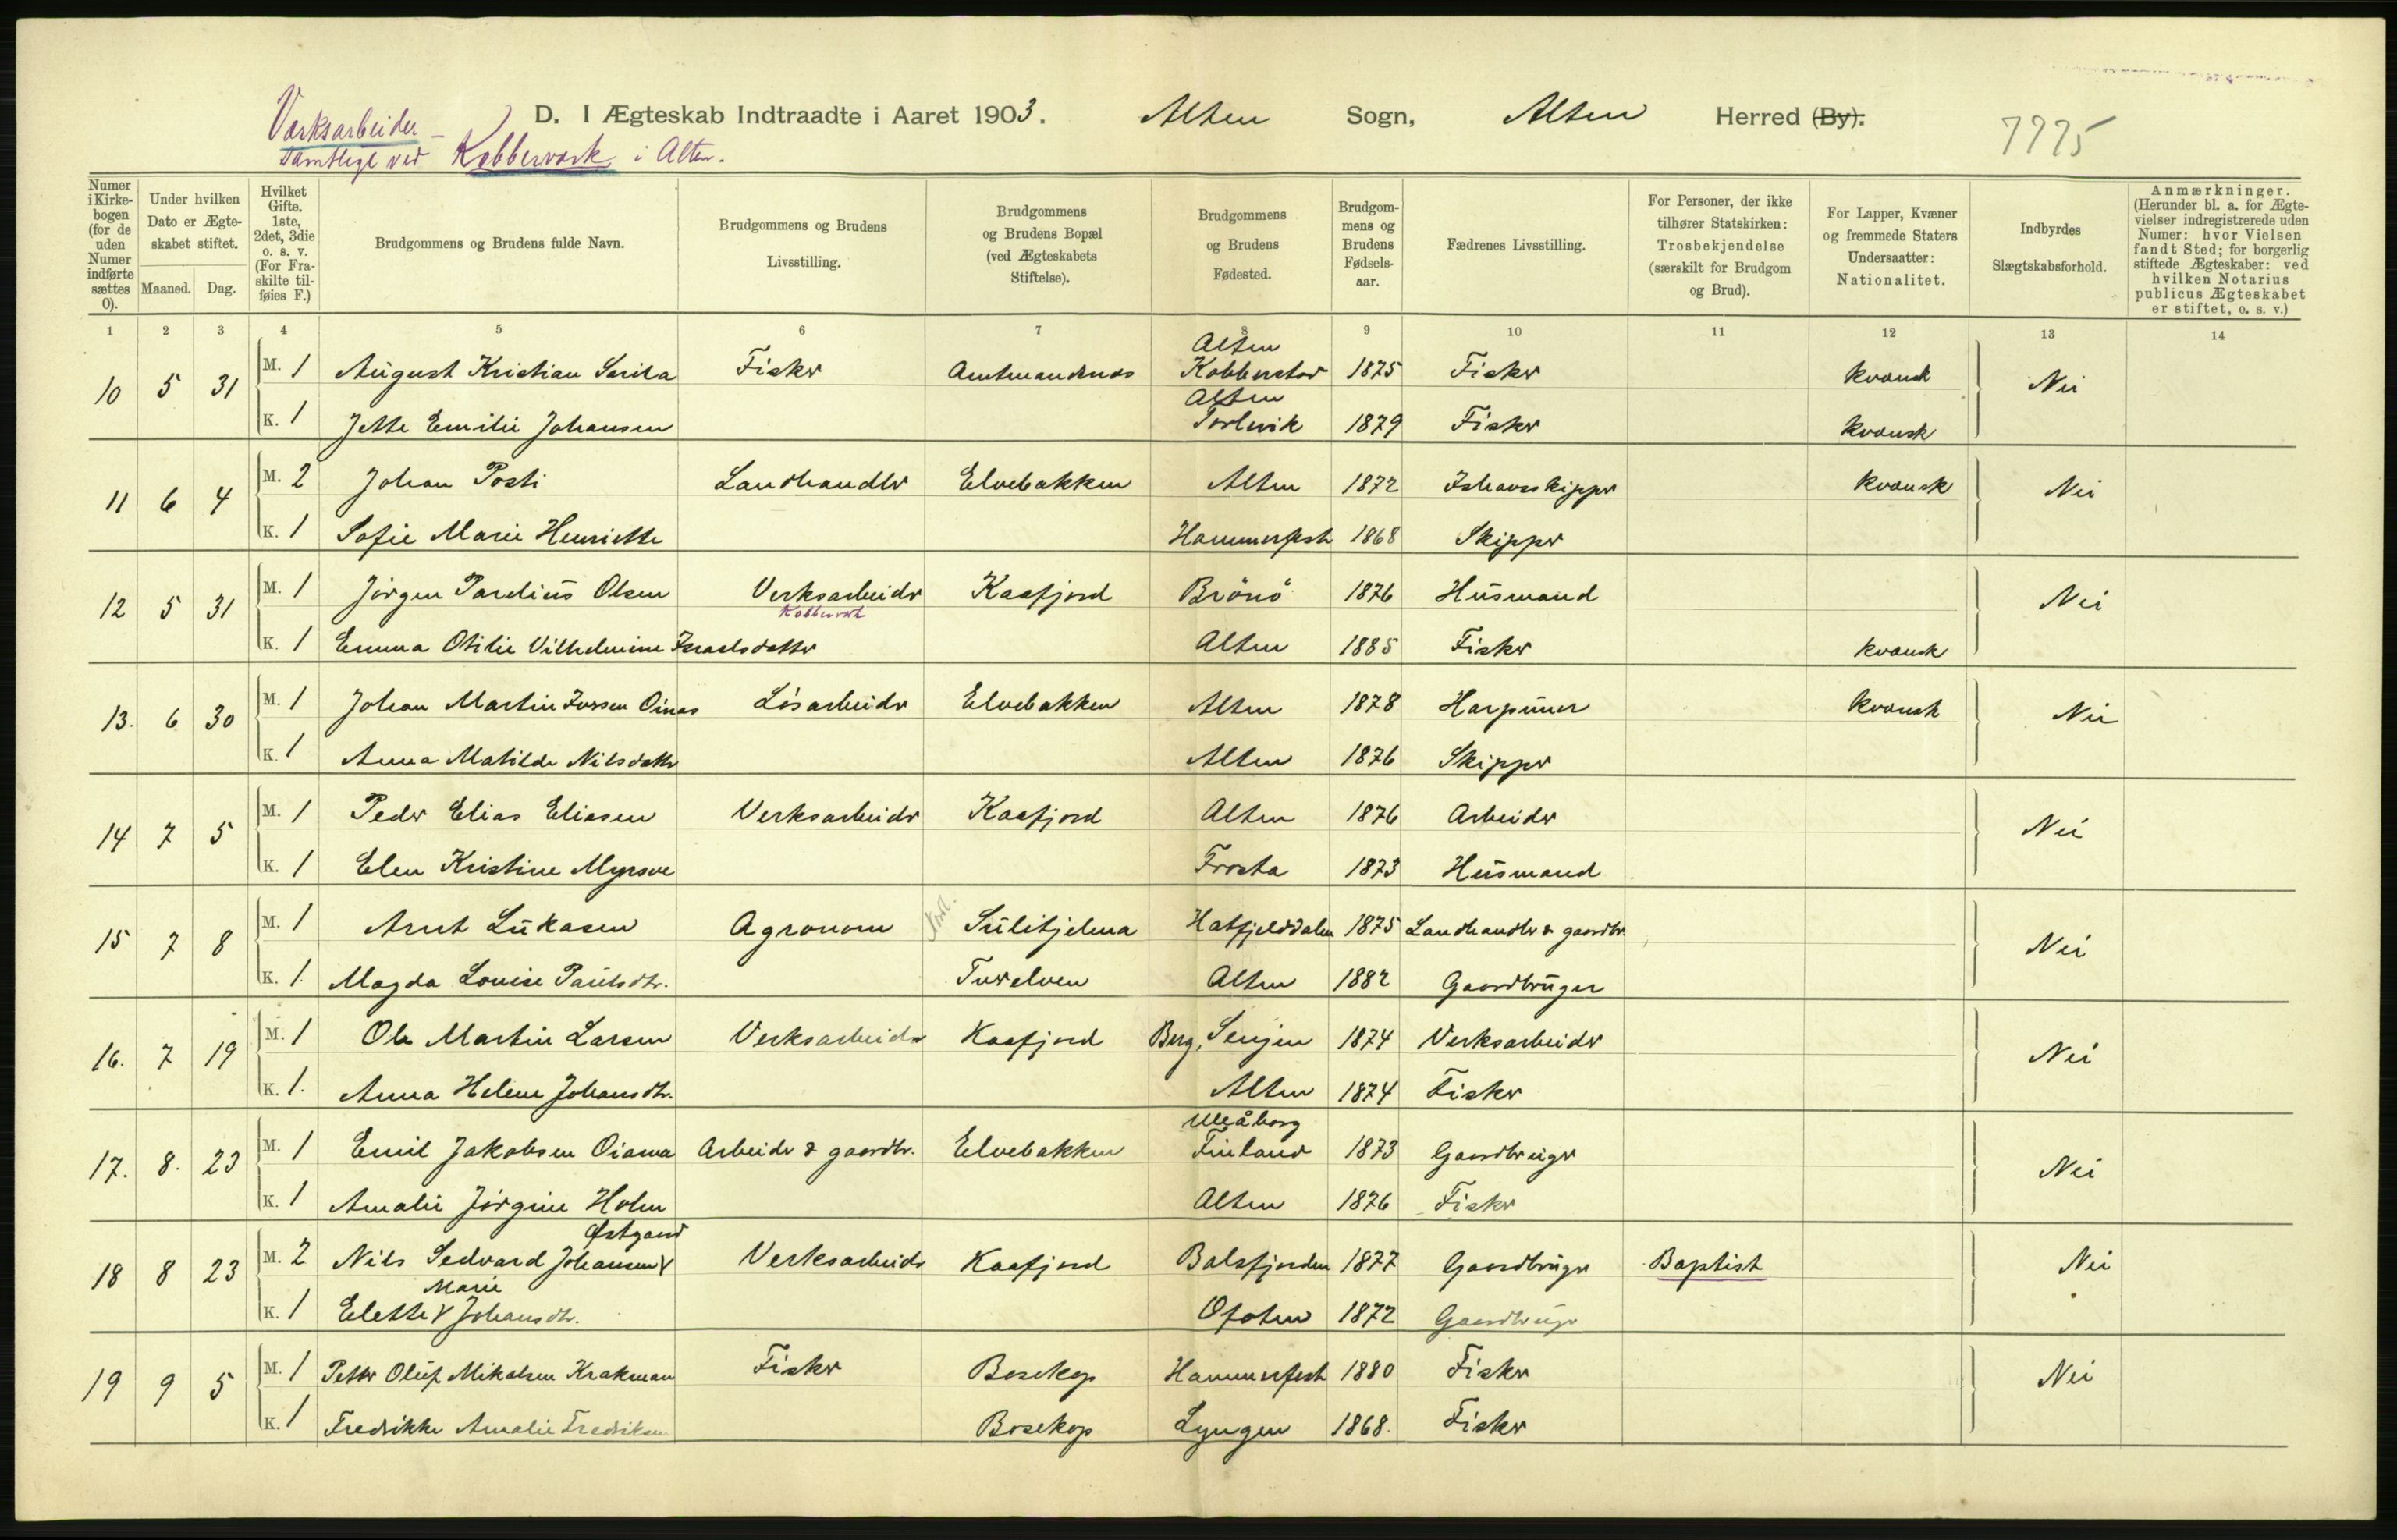 D. I Ægteskab Indtraadte i Aaret 1903. Alten Sogn, Alten Herred (By).
Værksarbeider –
samtlige ved Kobberværk i Alten.
7775
Numer i Kirkebogen (for de uden Numer indførte sættes 0).
Under hvilken Dato er Ægteskabet stiftet.
Maaned. Dag.
Hvilket Gifte. 1ste, 2det, 3die o. s. v. (For Fraskilte tilføies F.)
Brudgommens og Brudens fulde Navn.
Brudgommens og Brudens Livsstilling.
Brudgommens og Brudens Bopæl (ved Ægteskabets Stiftelse).
Brudgommens og Brudens Fødested.
Brudgommens og Brudens Fødselsaar.
Fædrenes Livsstilling.
For Personer, der ikke tilhører Statskirken: Trosbekjendelse (særskilt for Brudgom og Brud).
For Lapper, Kvæner og fremmede Staters Undersaatter: Nationalitet.
Indbyrdes Slægtskabsforhold.
Anmærkninger. (Herunder bl. a. for Ægtevielser indregistrerede uden Numer: hvor Vielsen fandt Sted; for borgerlig stiftede Ægteskaber: ved hvilken Notarius publicus Ægteskabet er stiftet, o. s. v.)
1 2 3 4 5 6 7 8 9 10 11 12 13 14
10 5 31 M. 1 August Kristian Sarila Fisker Amtmandsnes Alten Kobberstad 1875 Fisker kvænsk Nei
K. 1 Jette Emilie Johansen Alten 1879 Fisker kvænsk
11 6 4 M. 2 Johan Posti Landhandler Elvebakken Alten 1872 Ishavsskipper kvænsk Nei
K. 1 Sofie Marie Henriette Hammerfest 1868 Skipper
12 5 31 M. 1 Jörgen Pardius Olsen Verksarbeider Kobberverk Kaafjord Brönö 1876 Husmand Nei
K. 1 Emma Otilie Vilhelmine Israelsdatter Alten 1885 Fisker kvænsk
13. 6 30 M. 1 Johan Martin Oinas Lösarbeider Elvebakken Alten 1878 Harpuner kvænsk Nei
K. 1 Anna Matilde Nilsdatter Alten 1876 Skipper
14 7 5 M. 1 Peder Elias Eliasen Verksarbeider Kaafjord Alten 1876 Arbeider Nei
K. 1 Elen Kristine Myrsve Frosta 1873 Husmand
15 7 8 M. 1 Arnt Lukasen Agronom Sulitjelma Hatfjelddalen 1875 Landhandler & gaardbr. Nei
K. 1 Magda Louise Paulsdtr. Tverelven Alten 1882 Gaardbruger
16. 7 19 M. 1 Ole Martin Larsen Verksarbeider Kaafjord Berg, Senjen 1874 Verksarbeider Nei
K. 1. Anna Helene Johansdtr. Alten 1874 Fisker
17. 8. 23 M. 1 Emil Jakobsen Oiama Arbeider & gaardbr. Elvebakken Uleåborg Finland 1873 Gaardbruger Nei
K. 1 Amalie Jörgine Holm Alten 1876 Fisker
18 8 23 M. 2 Nils Sedvard Johansen Østgaard Verksarbeider Kaafjord Balsfjorden 1877 Gaardbruger Baptist Nei
K. 1 Elette Marie Johansdtr. Ofoten 1872 Gaardbruger
19 9 5 M. 1 Petter Oluf Mikalsen Krakman Fisker Bosekop Hammerfest 1880 Fisker Nei
K. 1 Fredrikke Amalie Fredriksen Bosekop Lyngen 1868. Fisker